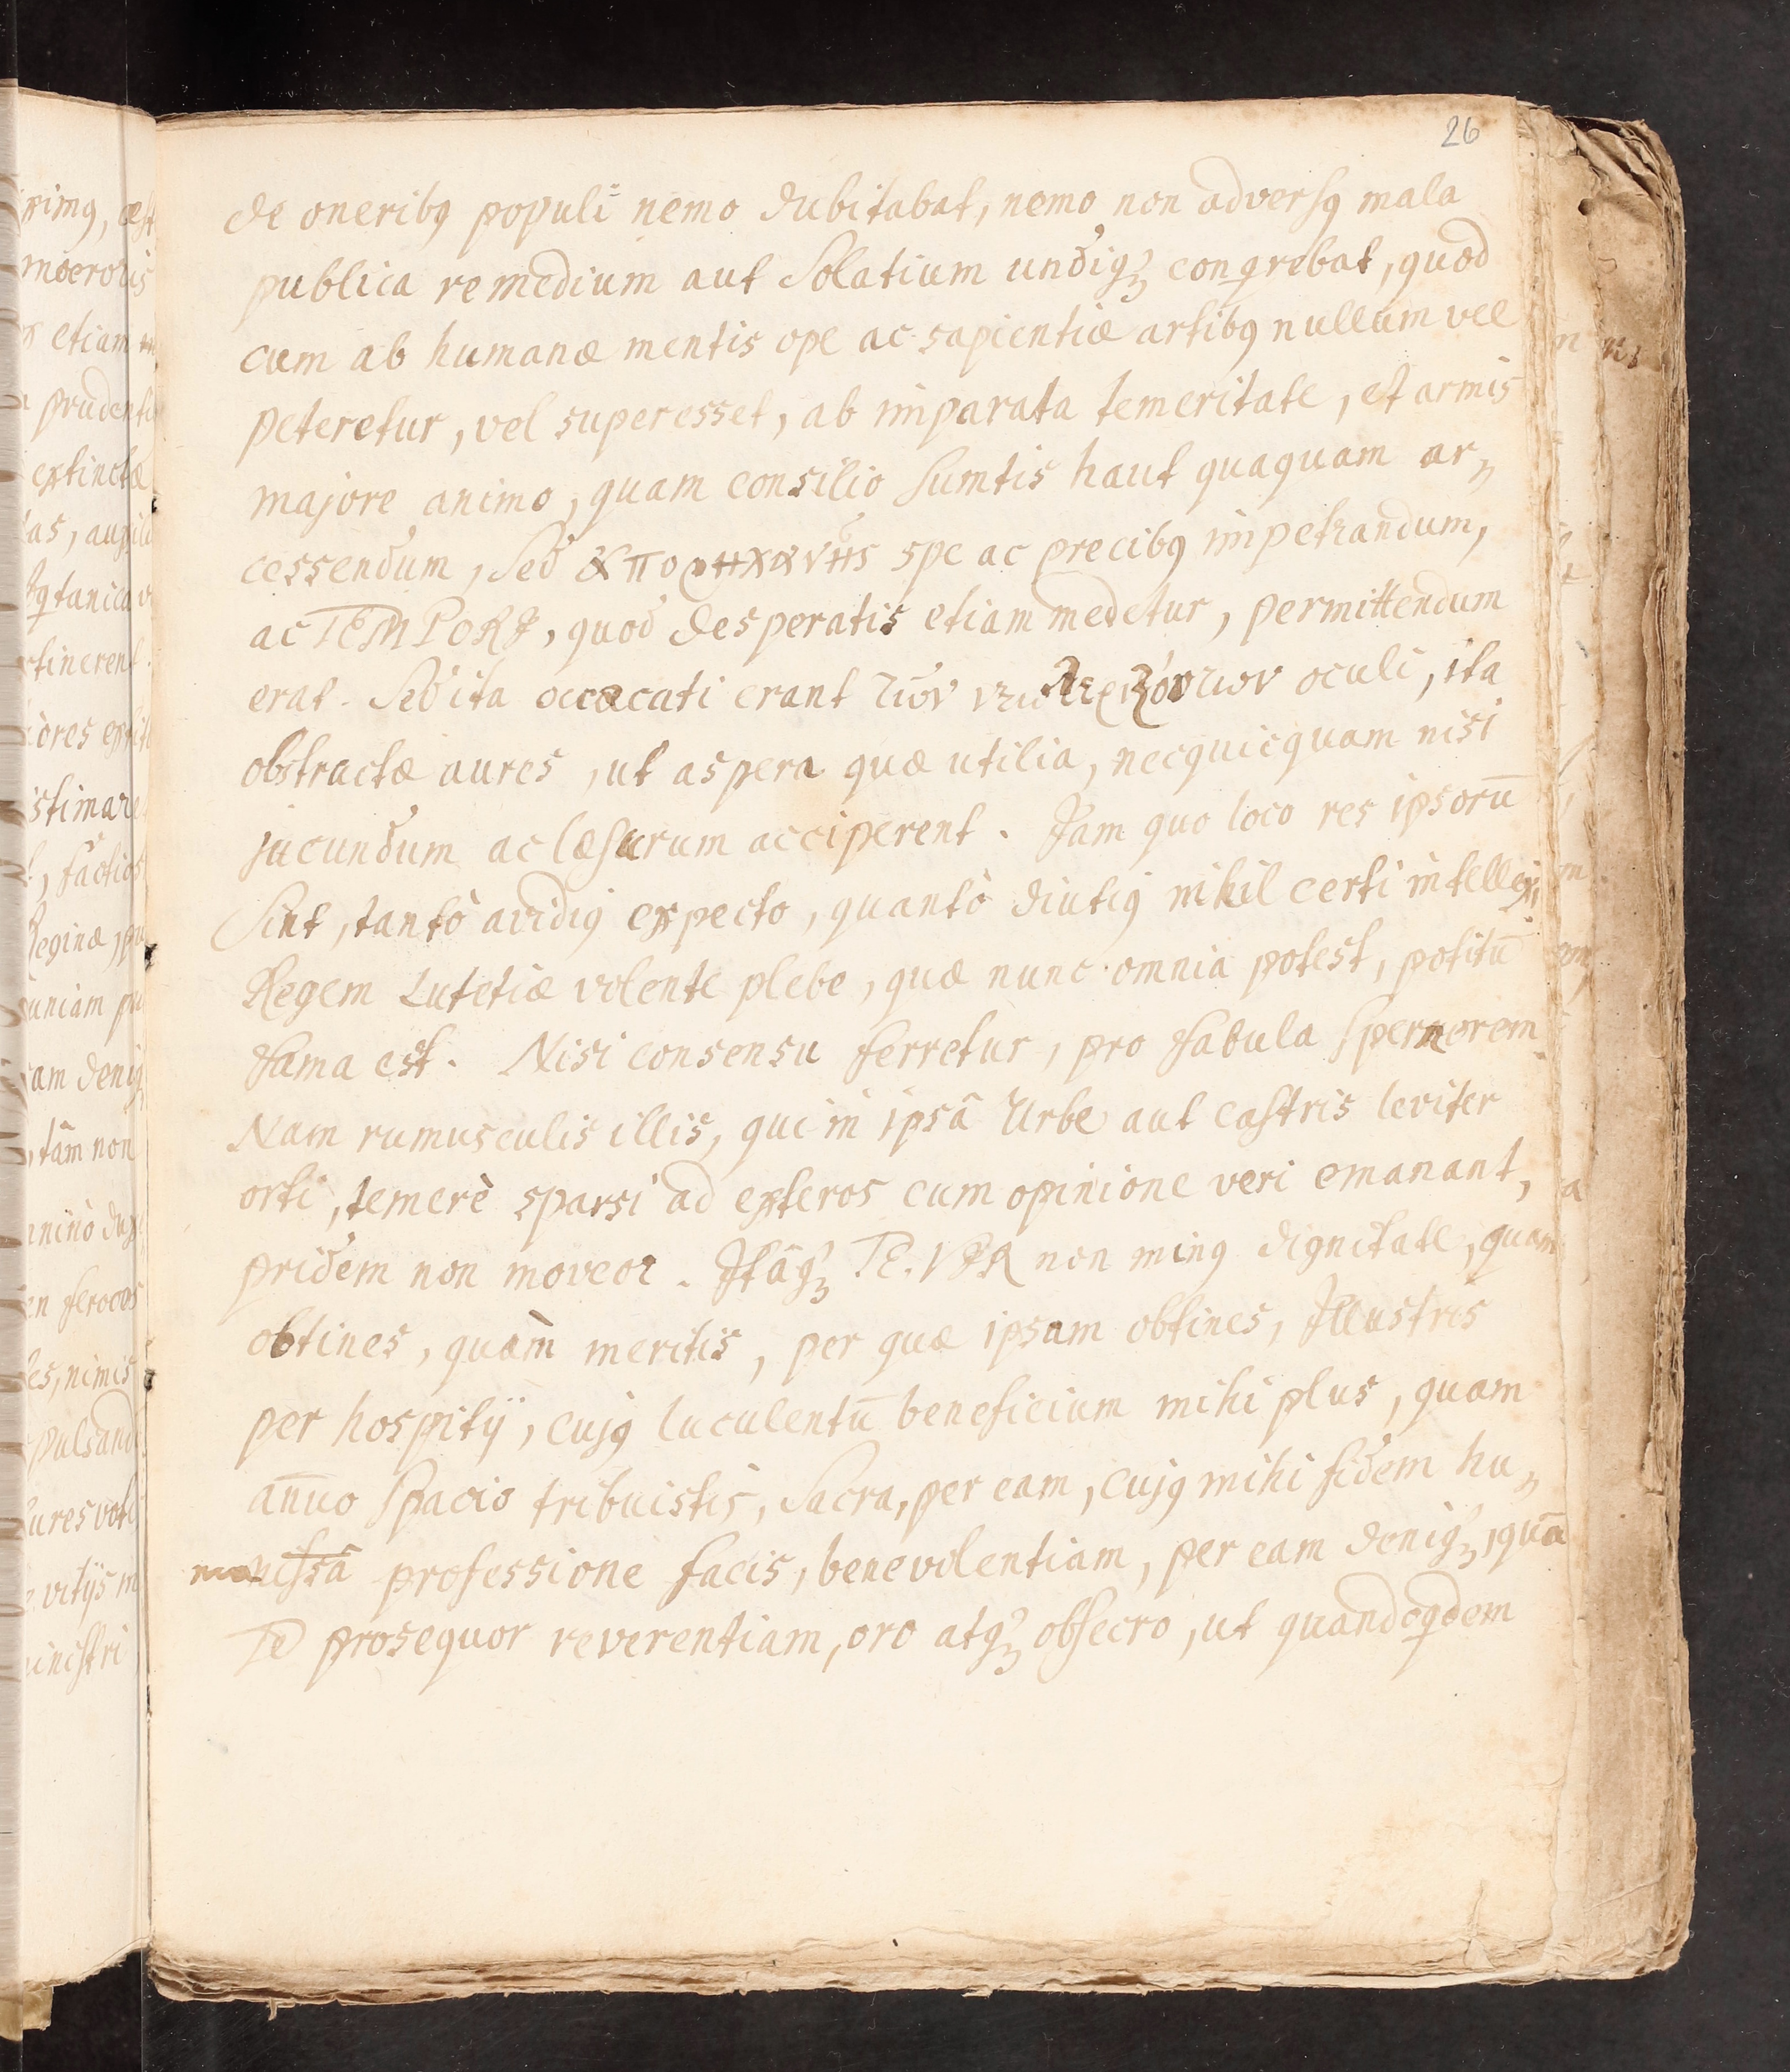 26
de oneribꝰ populi nemo dubitabat, nemo non adversꝰ mala
publica remedium aut Solatium undiqꝫ conqrebat, quod
cum ab humanæ mentis ope ac sapientiæ artibꝰ nullum vel
peteretur, vel superesset, ab imparata temeritate, et armis
majore animo, quam consilio sumtis haut quaquam ar⸗
cessendum, sed ἀπομηχανῆς spe ac precibꝰ impetrandum,
ac TEMPORI, quod desperatis etiam medetur, permittendum
erat. Sed ita occæcati erant τῶν oculi, ita
obstructæ aures, ut aspera quæ utilia, necquicquam nisi
jucundum ac læsurum acciperent. Jam quo loco res ipsorū
Sint, tantò avidiꝰ expecto, quantò diutiꝰ nihil certi intellexi,
Regem Lutetiæ volente plebe, quæ nunc omnia potest, potitū
fama est. Nisi consensu ferretur, pro fabula spernerem.
Nam rumusculis illis, qui in ipsâ Urbe aut castris leviter
orti, temerè sparsi ad exteros cum opinione veri emanant,
pridem non moveor. Itâqꝫ TE. VIR non minꝰ dignitate, quam
obtines, quàm meritis, per quæ ipsam obtines, Illustris
per hospitÿ, cujꝰ luculentū beneficium mihi plus, quam
añuo spacio tribuistis, Sacra, per eam, cujꝰ mihi fidem hu⸗
professione facis, benevolentiam, per eam deniqꝫ, quā
Te prosequor reverentiam, oro atqꝫ obsecro, ut quandoqdem